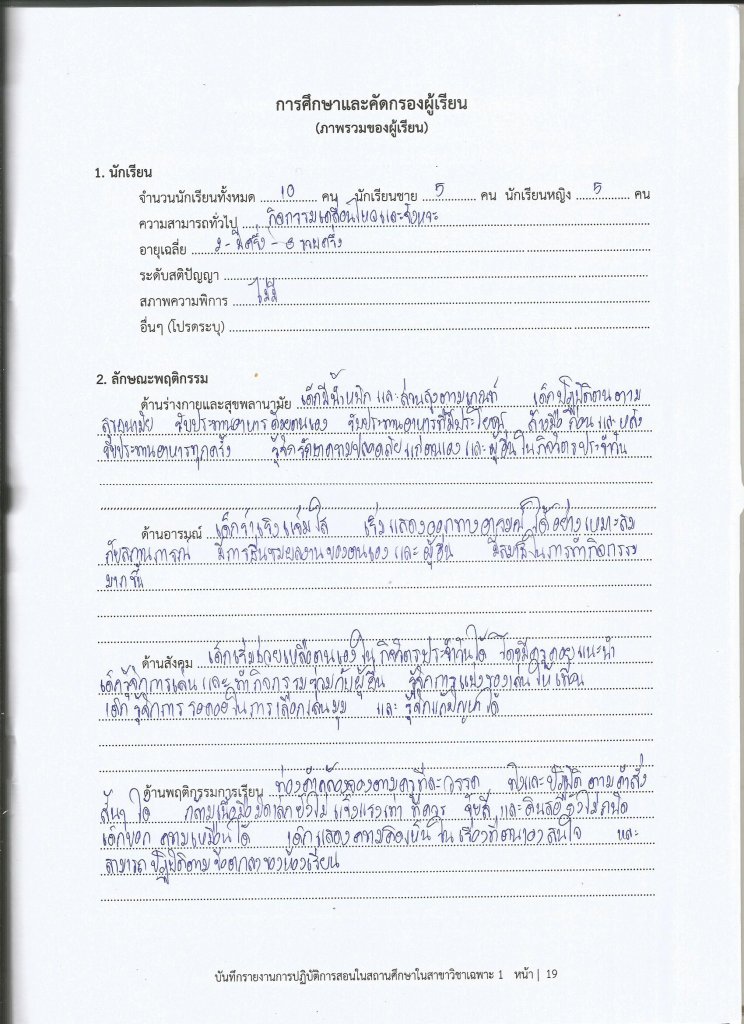 การศึกษาและคัดกรองผู้เรียน
(ภาพรวมของผู้เรียน)
1. นักเรียน
จำนวนนักเรียนทั้งหมด 10 คน นักเรียนชาย 5 คน นักเรียนหญิง 5 คน
ความสามารถทั่วไป กิจกรรมเคลื่อนไหวและจังหวะ
อายุเฉลี่ย
ระดับสติปัญญา
สภาพความพิการ ไม่มี
อื่นๆ (โปรดระบุ)
2. ลักษณะพฤติกรรม
ด้านร่างกายและสุขพลานามัย เด็กมีน้ำหนักและส่วนสูงตามเกณฑ์ เด็กปฏิบัติตนตาม
สุขอนามัย รับประทานอาหารด้วยตนเอง รับประทานอาหารที่มีประโยชน์ ล้างมือก่อนและหลัง
รับประทานอาหารทุกครั้ง รู้จักรักษาความปลอดภัยแก่ตนเองและผู้อื่นในกิจวัตรประจำวัน
ด้านอารมณ์ เด็กร่าเริงแจ่มใส เริ่มแสดงออกทางอารมณ์ได้อย่างเหมาะสม
กับสถานการณ์ มีการชื่นชมผลงานของตนเองและผู้อื่น มีสมาธิในการทำกิจกรรม
มากขึ้น
ด้านสังคม เด็กเริ่มช่วยเหลือตนเองในกิจวัตรประจำวันได้ โดยมีครูคอยแนะนำ
เด็กรู้จักการเล่นและทำกิจกรรมร่วมกับผู้อื่น รู้จักการแบ่งของเล่นให้เพื่อน
เด็กรู้จักการรอคอยในการเลือกเล่นมุม และรู้จักแก้ปัญหาได้
ด้านพฤติกรรมการเรียน ท่องคำคล้องจองตามครูทีละวรรค ฟังและปฏิบัติตามคำสั่ง
สั้นๆ ได้ กล้ามเนื้อมือมัดเล็กยังไม่แข็งแรงเท่าที่ควร จับสี และดินสอยังไม่ถนัด
เด็กบอกความเหมือนได้ เด็กแสดงความคิดเห็นในเรื่องที่ตนเองสนใจ และ
สามารถปฏิบัติตามข้อตกลงของห้องเรียน
บันทึกรายงานการปฏิบัติการสอนในสถานศึกษาในสาขาวิชาเฉพาะ 1 หน้า | 19